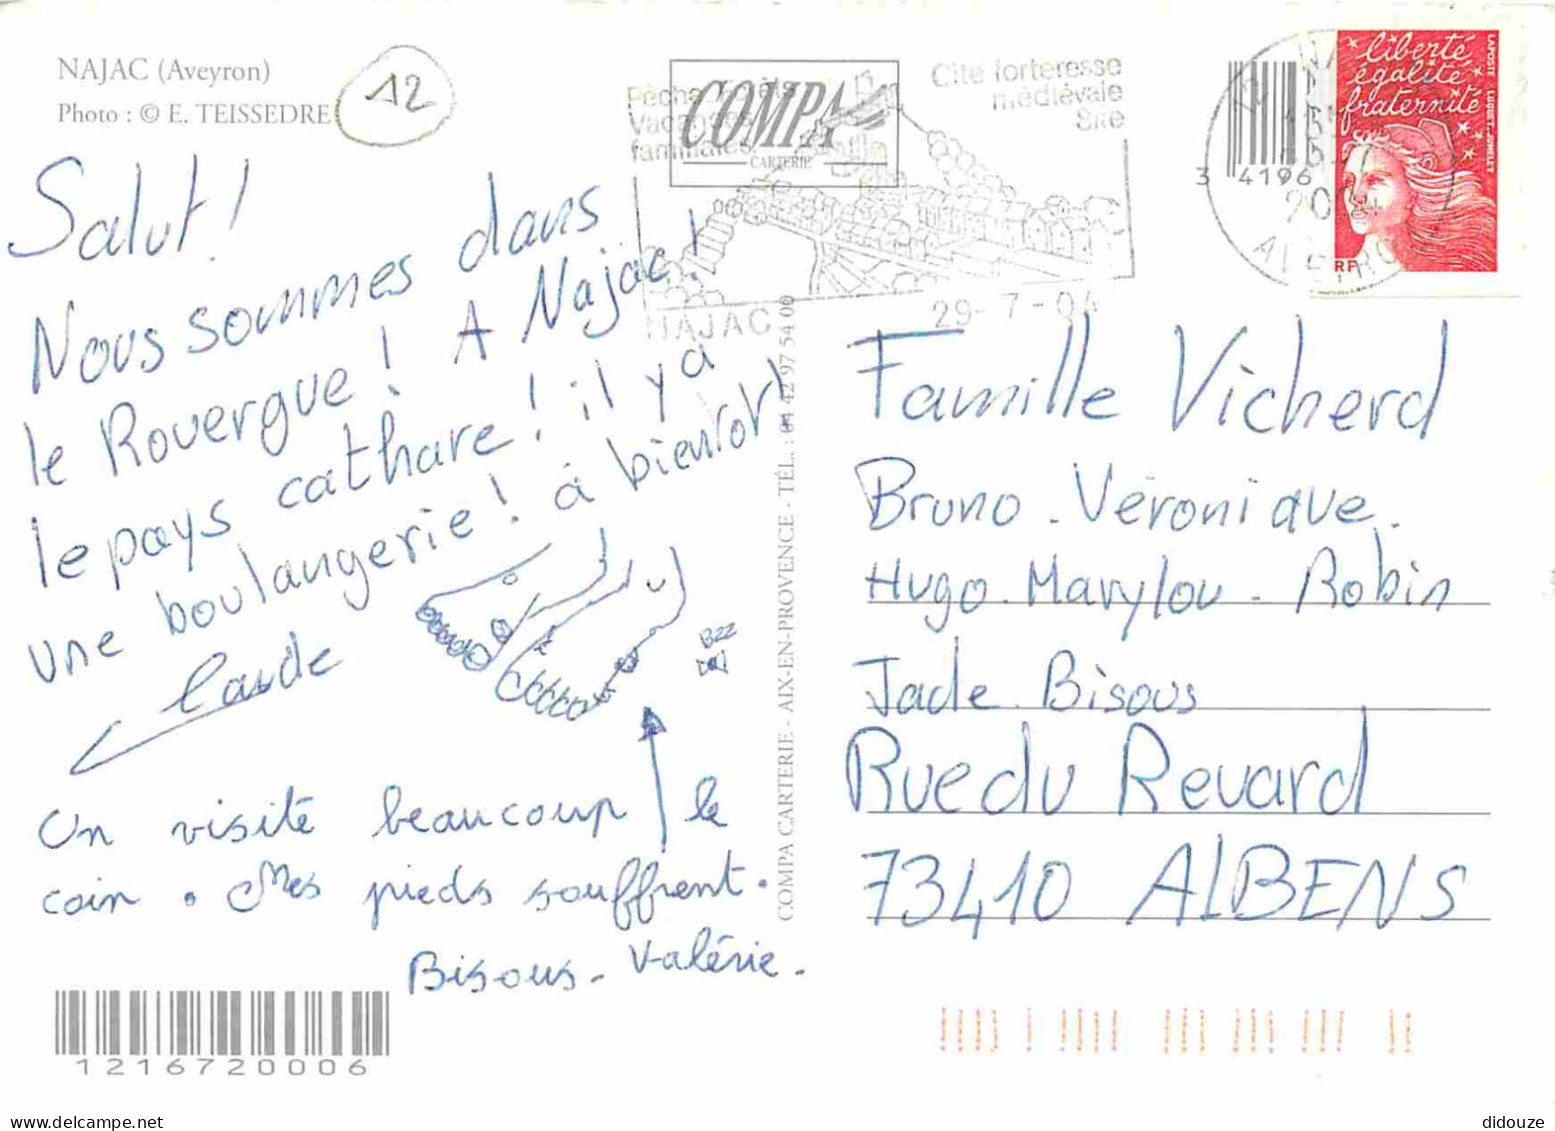 NAJAC (Aveyron)
Photo : © E. TEISSEDRE
12
Salut !
Nous sommes dans
le Rouergue ! A Najac !
le pays cathare ! il y a
une boulangerie ! à bientôt !
On visite beaucoup le
coin. Mes pieds souffrent.
Bisous - Valérie.
BZZ
1216720006
COMPA
CARTERIE
Vacances
familiales
Cité forteresse
médiévale
Site
NAJAC
29-7-04
3 4196
AVEYRON
liberté
égalité
fraternité
LAPOSTE LUQUET-JUMELET
RF
COMPA CARTERIE - AIX-EN-PROVENCE - TÉL. : 04 42 97 54 00
Famille Vicherd
Bruno - Véronique.
Hugo - Marylou - Robin
Jade. Bisous
Rue du Revard
73410 AlBENS
didouze